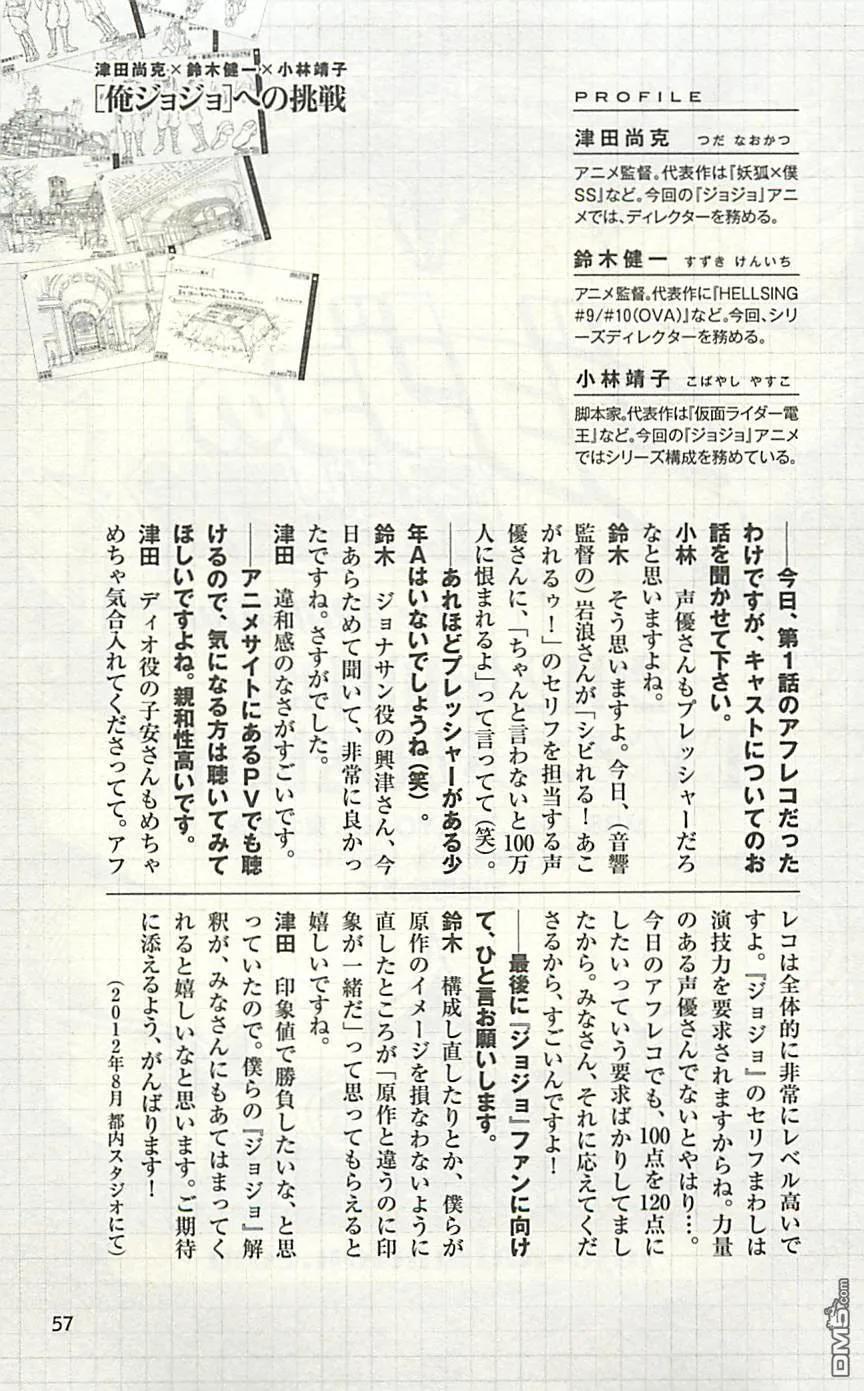 津田尚克×鈴木健一×小林靖子
［俺ジョジョ］への挑戦
PROFILE
津田尚克 つだ なおかつ
アニメ監督。代表作は『妖狐×僕
SS』など。今回の『ジョジョ』アニ
メでは、ディレクターを務める。
鈴木健一 すずき けんいち
アニメ監督。代表作に『HELLSING
#9/#10(OVA)』など。今回、シリ
ーズディレクターを務める。
小林靖子 こばやし やすこ
脚本家。代表作は『仮面ライダー電
王』など。今回の『ジョジョ』アニメ
ではシリーズ構成を務めている。
――今日、第1話のアフレコだった
わけですが、キャストについてのお
話を聞かせて下さい。
小林　声優さんもプレッシャーだろ
なと思いますよね。
鈴木　そう思いますよ。今日、（音響
監督の）岩浪さんが「シビれる！あこ
がれるゥ！」のセリフを担当する声
優さんに、「ちゃんと言わないと100万
人に恨まれるよ」って言ってて（笑）。
――あれほどプレッシャーがある少
年Aはいないでしょうね（笑）。
鈴木　ジョナサン役の興津さん、今
日あらためて聞いて、非常に良かっ
たですね。さすがでした。
津田　違和感のなさがすごいです。
――アニメサイトにあるPVでも聴
けるので、気になる方は聴いてみて
ほしいですよね。親和性高いです。
津田　ディオ役の子安さんもめちゃ
めちゃ気合入れてくださってて。アフ
レコは全体的に非常にレベル高いで
すよ。『ジョジョ』のセリフまわしは
演技力を要求されますからね。力量
のある声優さんでないとやはり…。
今日のアフレコでも、100点を120点に
したいっていう要求ばかりしてまし
たから。みなさん、それに応えてくだ
さるから、すごいんですよ！
――最後に『ジョジョ』ファンに向け
て、ひと言お願いします。
鈴木　構成し直したりとか、僕らが
原作のイメージを損なわないように
直したところが「原作と違うのに印
象が一緒だ」って思ってもらえると
嬉しいですね。
津田　印象値で勝負したいな、と思
っていたので。僕らの『ジョジョ』解
釈が、みなさんにもあてはまってく
れると嬉しいなと思います。ご期待
に添えるよう、がんばります！
（2012年8月 都内スタジオにて）
57
DM5.com